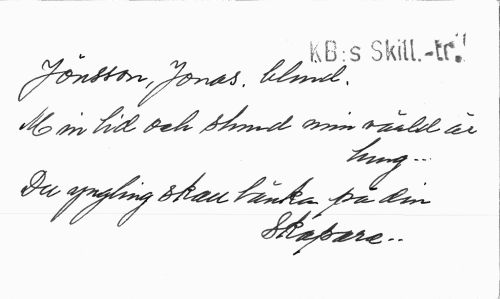 KB:s Skill.-tr.
Jönsson, Jonas. blind.
Min tid och stund min värld är
tung--
Du yngling skall tänka på din
Skapare--